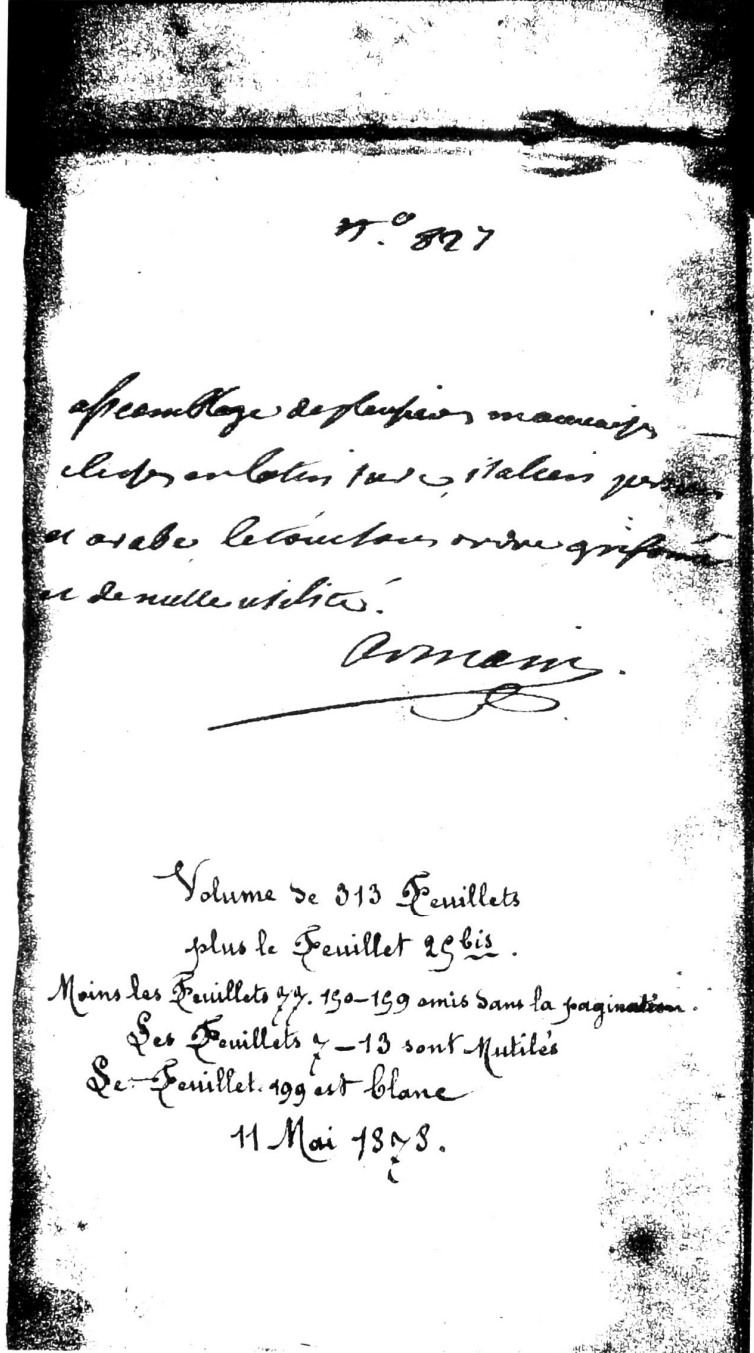 N.º 827
assemblage de plusieurs mauvaises
pieces en latin turc, italien persan
et arabe le tout sans ordre grifoné
et de nulle utilité.
Armain.
Volume de 313 Feuillets
plus le Feuillet 29 bis.
Moins les Feuillets 77. 150-159 omis dans la pagination.
Les Feuillets 7-13 sont Mutilés
Le Feuillet 199 est blanc
11 Mai 1878.